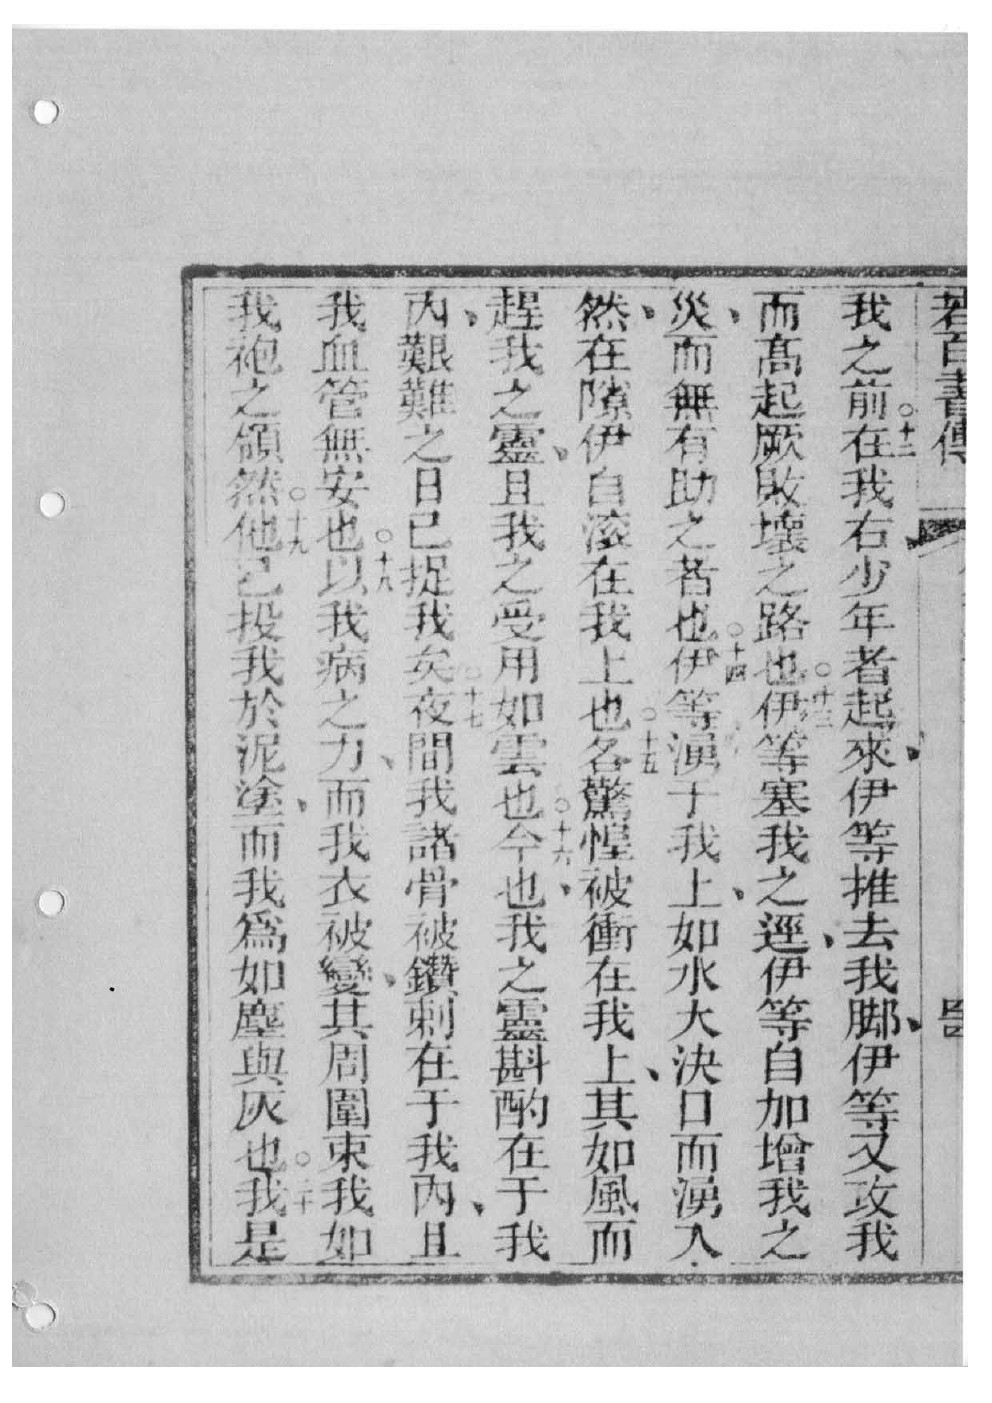 若百書傳
我之前○十二在我右少年者起來、伊等推去我脚、伊等又攻我
而髙起厥敗壞之路也○十三伊等塞我之逕、伊等自加增我之
災、而無有助之者也○十四伊等湧于我上、如水大決口而湧入、
然、在隙伊自滚在我上也○十五各驚惶被衝在我上、其如風而
趕我之靈、且我之受用如雲也○十六今也、我之靈斟酌在于我
內、艱難之日已捉我矣○十七夜間我諸骨被鑽刺在于我內、且
我血管無安也○十八以我病之力、而我衣被變、其周圍束我如
我袍之領然○十九他已投我於泥塗、而我爲如塵與灰也○二十我是